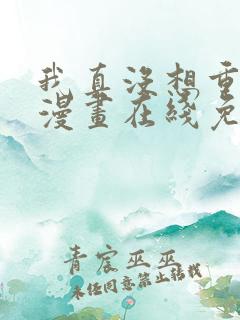 我真没想重
漫畫在綫免
青宸巫巫
未经同意禁止转载